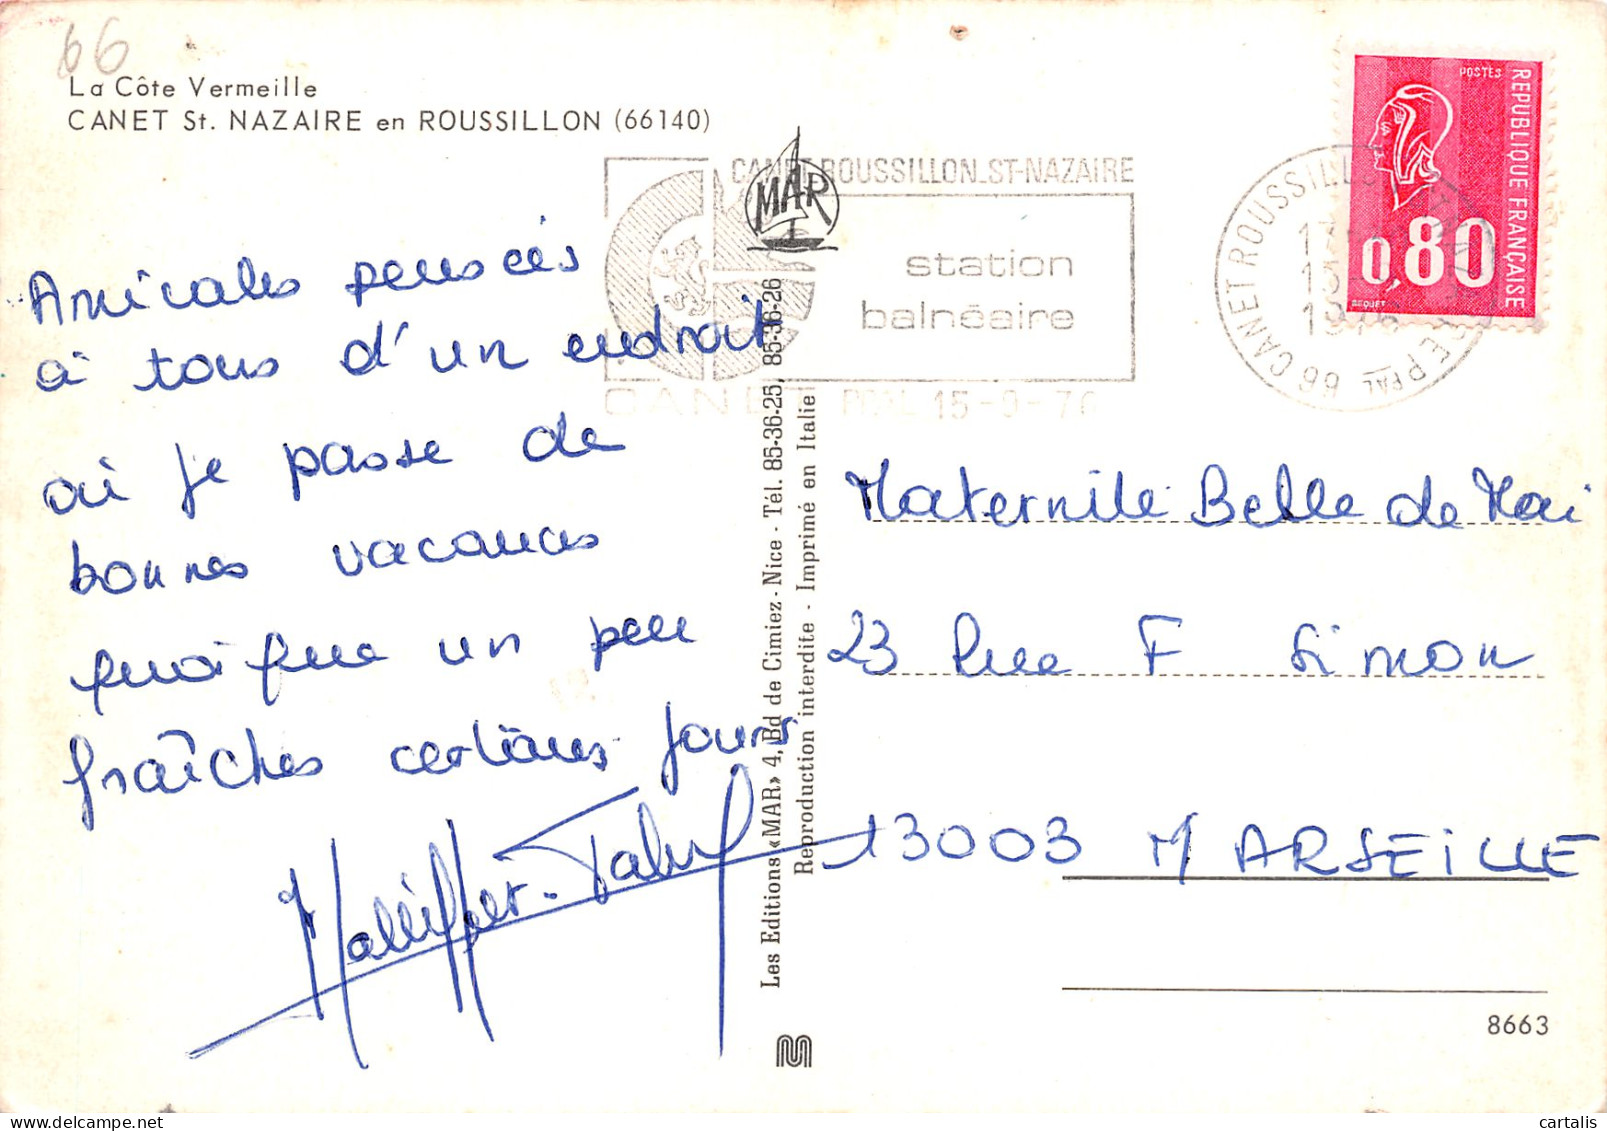 66
La Côte Vermeille
CANET St. NAZAIRE en ROUSSILLON (66140)
CANET-ROUSSILLON_ST-NAZAIRE
MAR
station
balnéaire
CANET PPAL 15-9-76
66 CANET ROUSSILLON ST NAZAIRE PPAL
1976
POSTES
REPUBLIQUE FRANÇAISE
0,80
BEQUET
Amicales pensées
à tous d'un endroit
où je passe de
bonnes vacances
quoique un peu
fraîches certains jours
Maternité Belle de Mai
23 Rue F Simon
13003 MARSEILLE
Les Editions «MAR» 4, Bd de Cimiez - Nice - Tél. 85-36-25, 85-36-26
Reproduction interdite - Imprimé en Italie
8663
cartalis